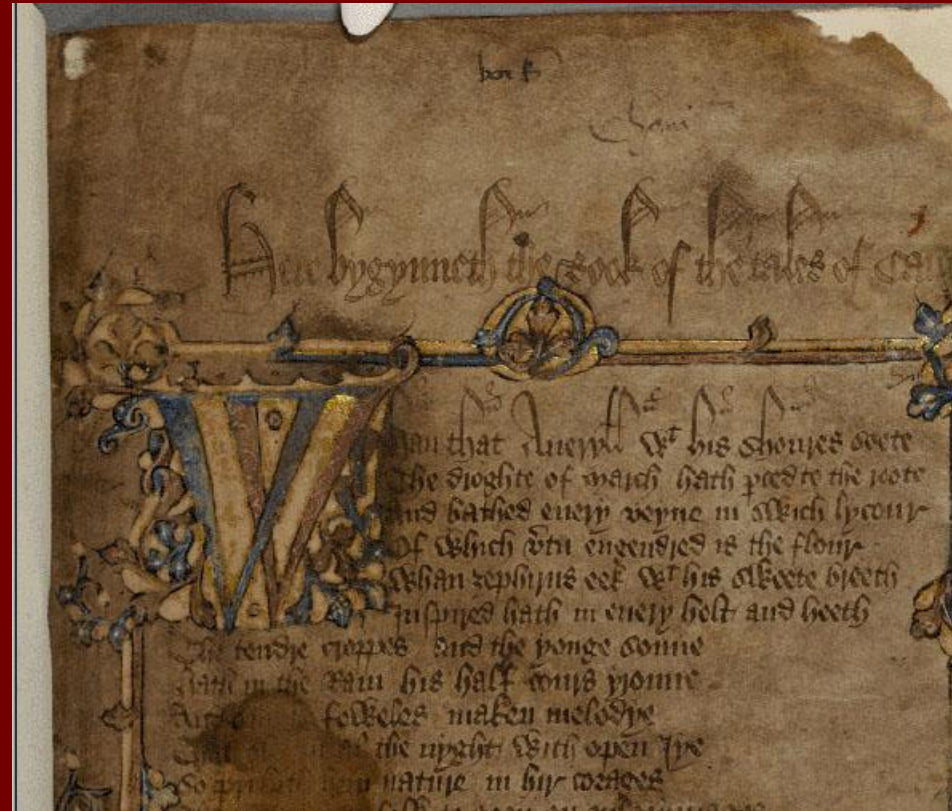 Here bygynneth the Book of the tales of Caun
Whan that Aueryłł wt his shoures soote
The droghte of march hath pced to the roote
And bathed euery veyne in swich lycour
Of which vtu engendred is the flour
Whan zephirus eek wt his sweete breeth
Inspired hath in euery holt and heeth
The tendre croppes and the yonge sonne
hath in the Ram his half cours yronne
And foweles maken melodye
the nyght with open Iye
So priketh hem nature in hir corages